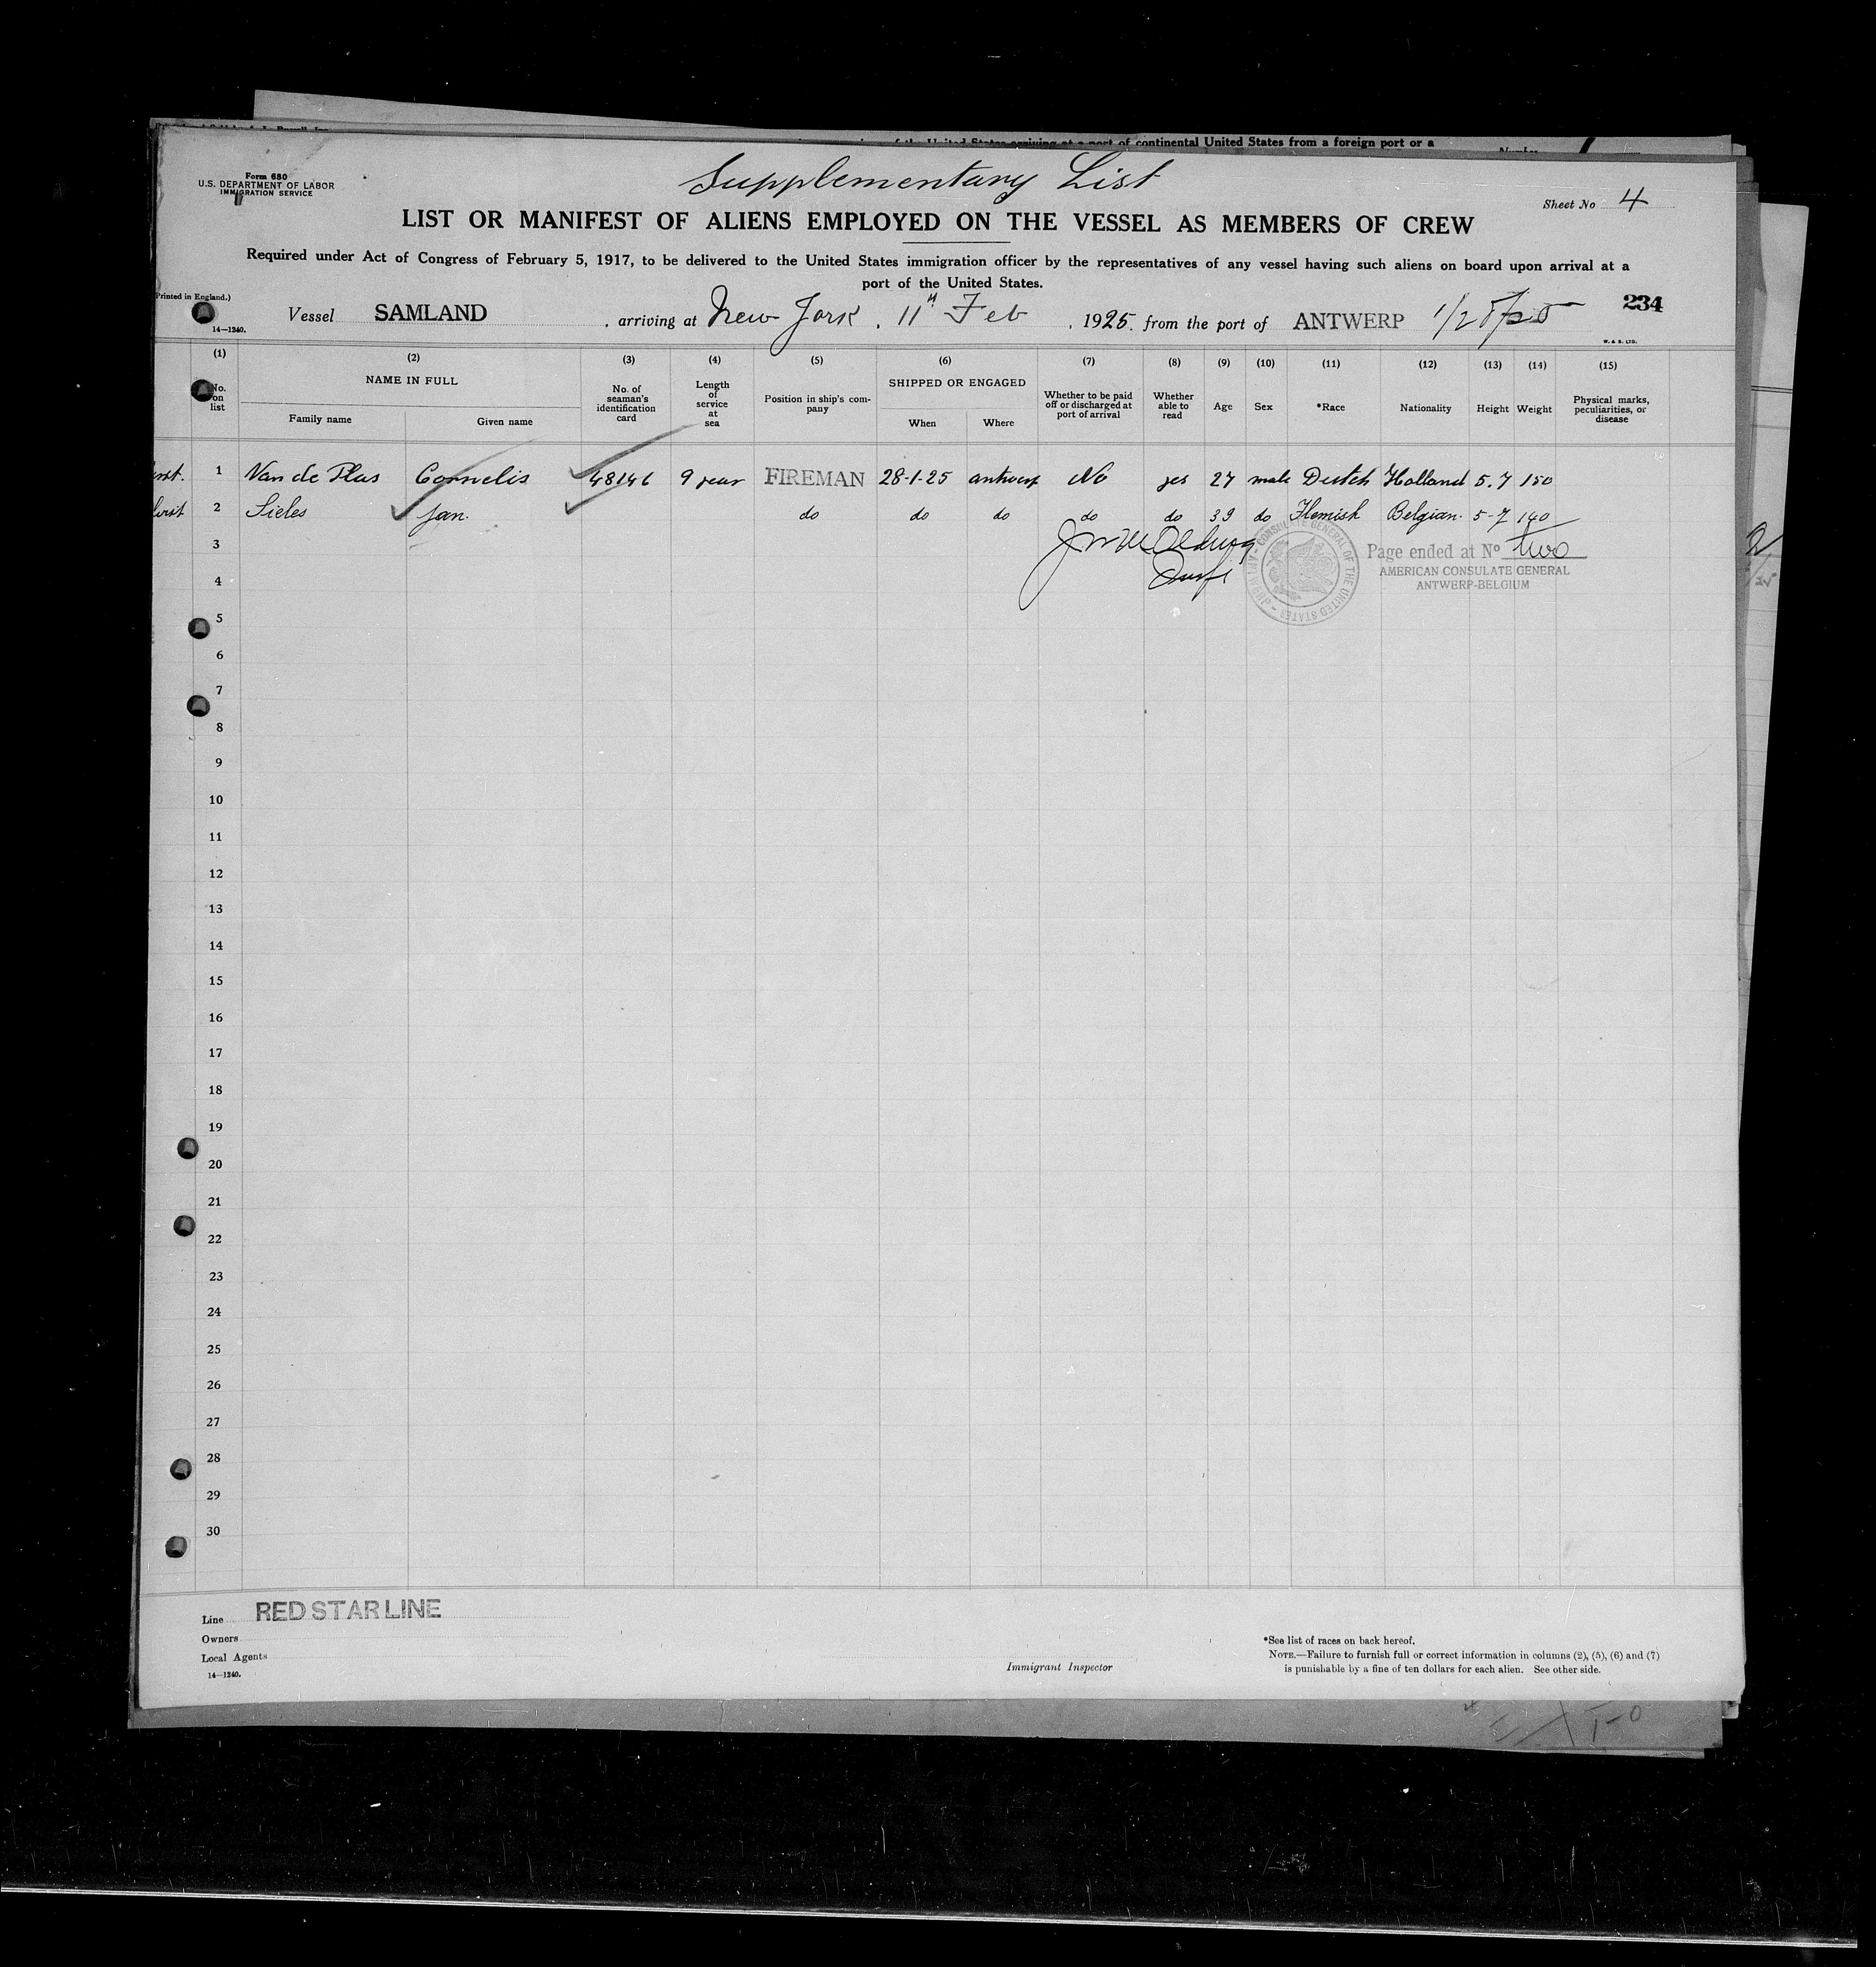 of the United States arriving at a port of continental United States from a foreign port or a
Number
Supplementary List
Form 680
U.S. DEPARTMENT OF LABOR
IMMIGRATION SERVICE
Sheet No 4
LIST OR MANIFEST OF ALIENS EMPLOYED ON THE VESSEL AS MEMBERS OF CREW
Required under Act of Congress of February 5, 1917, to be delivered to the United States immigration officer by the representatives of any vessel having such aliens on board upon arrival at a
port of the United States.
Printed in England.)
14—1240.
Vessel SAMLAND, arriving at New York, 11th Feb, 1925, from the port of ANTWERP
234
W. & S. LTD.
(1) (2) (3) (4) (5) (6) (7) (8) (9) (10) (11) (12) (13) (14) (15)
No. on list
NAME IN FULL
Family name Given name
No. of seaman's identification card
Length of service at sea
Position in ship's company
SHIPPED OR ENGAGED
When Where
Whether to be paid off or discharged at port of arrival
Whether able to read
Age
Sex
*Race
Nationality
Height
Weight
Physical marks, peculiarities, or disease
1 Van de Plas Cornelis 48146 9 year FIREMAN 28-1-25 antwerp No yes 27 male Dutch Holland 5.7 150
2 Sieles Jan. do do do do do 39 do Flemish Belgian. 5-7 140
3
4
Page ended at No two
AMERICAN CONSULATE GENERAL
ANTWERP-BELGIUM
5
6
7
8
9
10
11
12
13
14
15
16
17
18
19
20
21
22
23
24
25
26
27
28
29
30
Line RED STAR LINE
Owners
Local Agents
14—1240.
Immigrant Inspector
*See list of races on back hereof.
NOTE.—Failure to furnish full or correct information in columns (2), (5), (6) and (7)
is punishable by a fine of ten dollars for each alien. See other side.